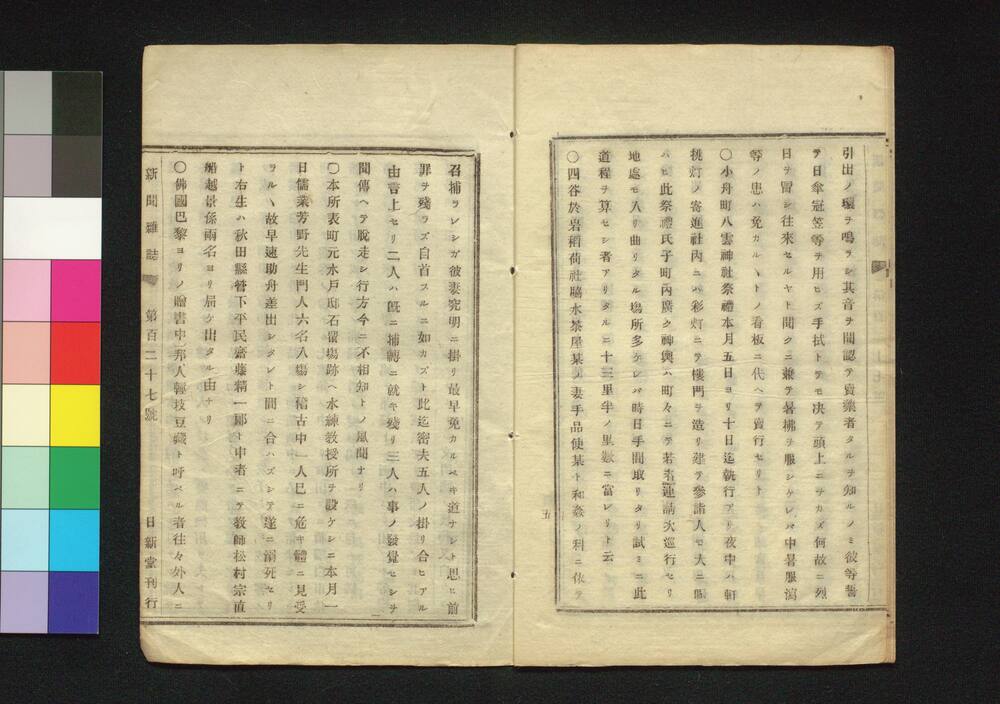 引出ノ環ヲ鳴ラシ其音ヲ聞認テ賣藥者タルヲ知ルノミ彼等誓
テ日傘冠笠等ヲ用ヒズ手拭トテモ决テ頭上ニサカズ何故ニ烈
日ヲ冒シ往來セルヤト聞クニ兼テ暑拂ヲ服シケレバ中暑服瀉
等ノ患ハ免カルヽトノ看板ニ代ヘテ賣行セリト
〇小舟町八雲神社祭禮本月五日ヨリ十日迄執行アリ夜中ハ軒
挑灯ノ寄進社內ニハ彩灯ニテ樓門ヲ造リ建テ參詣人モ大ニ賑
ハヒ此祭禮氏子町內廣ク神輿ハ町々ニテ若者連請次巡行セリ
地處モ入リ曲リタル塲所多ケレバ時日手間取リタリ試ミニ此
道程ヲ算セシ者アリタルニ十三里半ノ里數ニ當レリト云
〇四谷於岩稻荷社脇水茶屋某ノ妻手品使某ト和姦ノ科ニ依テ
五
召捕ラレシガ彼妻究明ニ掛リ最早免カルベキ道ナシト思ヒ前
罪ヲ殘ラズ自首スルニ如カズト此迄密夫五人ノ掛リ合ヒアル
由言上セリ二人ハ旣ニ捕縛ニ就キ殘リ三人ハ事ノ發覺セシヲ
聞傳ヘテ脫走シ行方今ニ不相知トノ風聞ナリ
〇本所表町元水戶邸石置塲跡ヘ水練敎授所ヲ設ケシニ本月一
日儒業芳野先生門人六名入塲シ稽古中一人巳ニ危キ體ニ見受
ラルヽ故早速助舟差出シタレト間ニ合ハズシテ遂ニ溺死セリ
ト右生ハ秋田縣管下平民齋藤精一郞ト申者ニテ敎師松村宗直
船越景係兩名ヨリ屆ケ出タル由ナリ
〇佛國巴黎ヨリノ贈書中邦人輕技豆藏ト呼ベル者往々外人ニ
新聞雜誌 第百二十七號 日新堂刊行